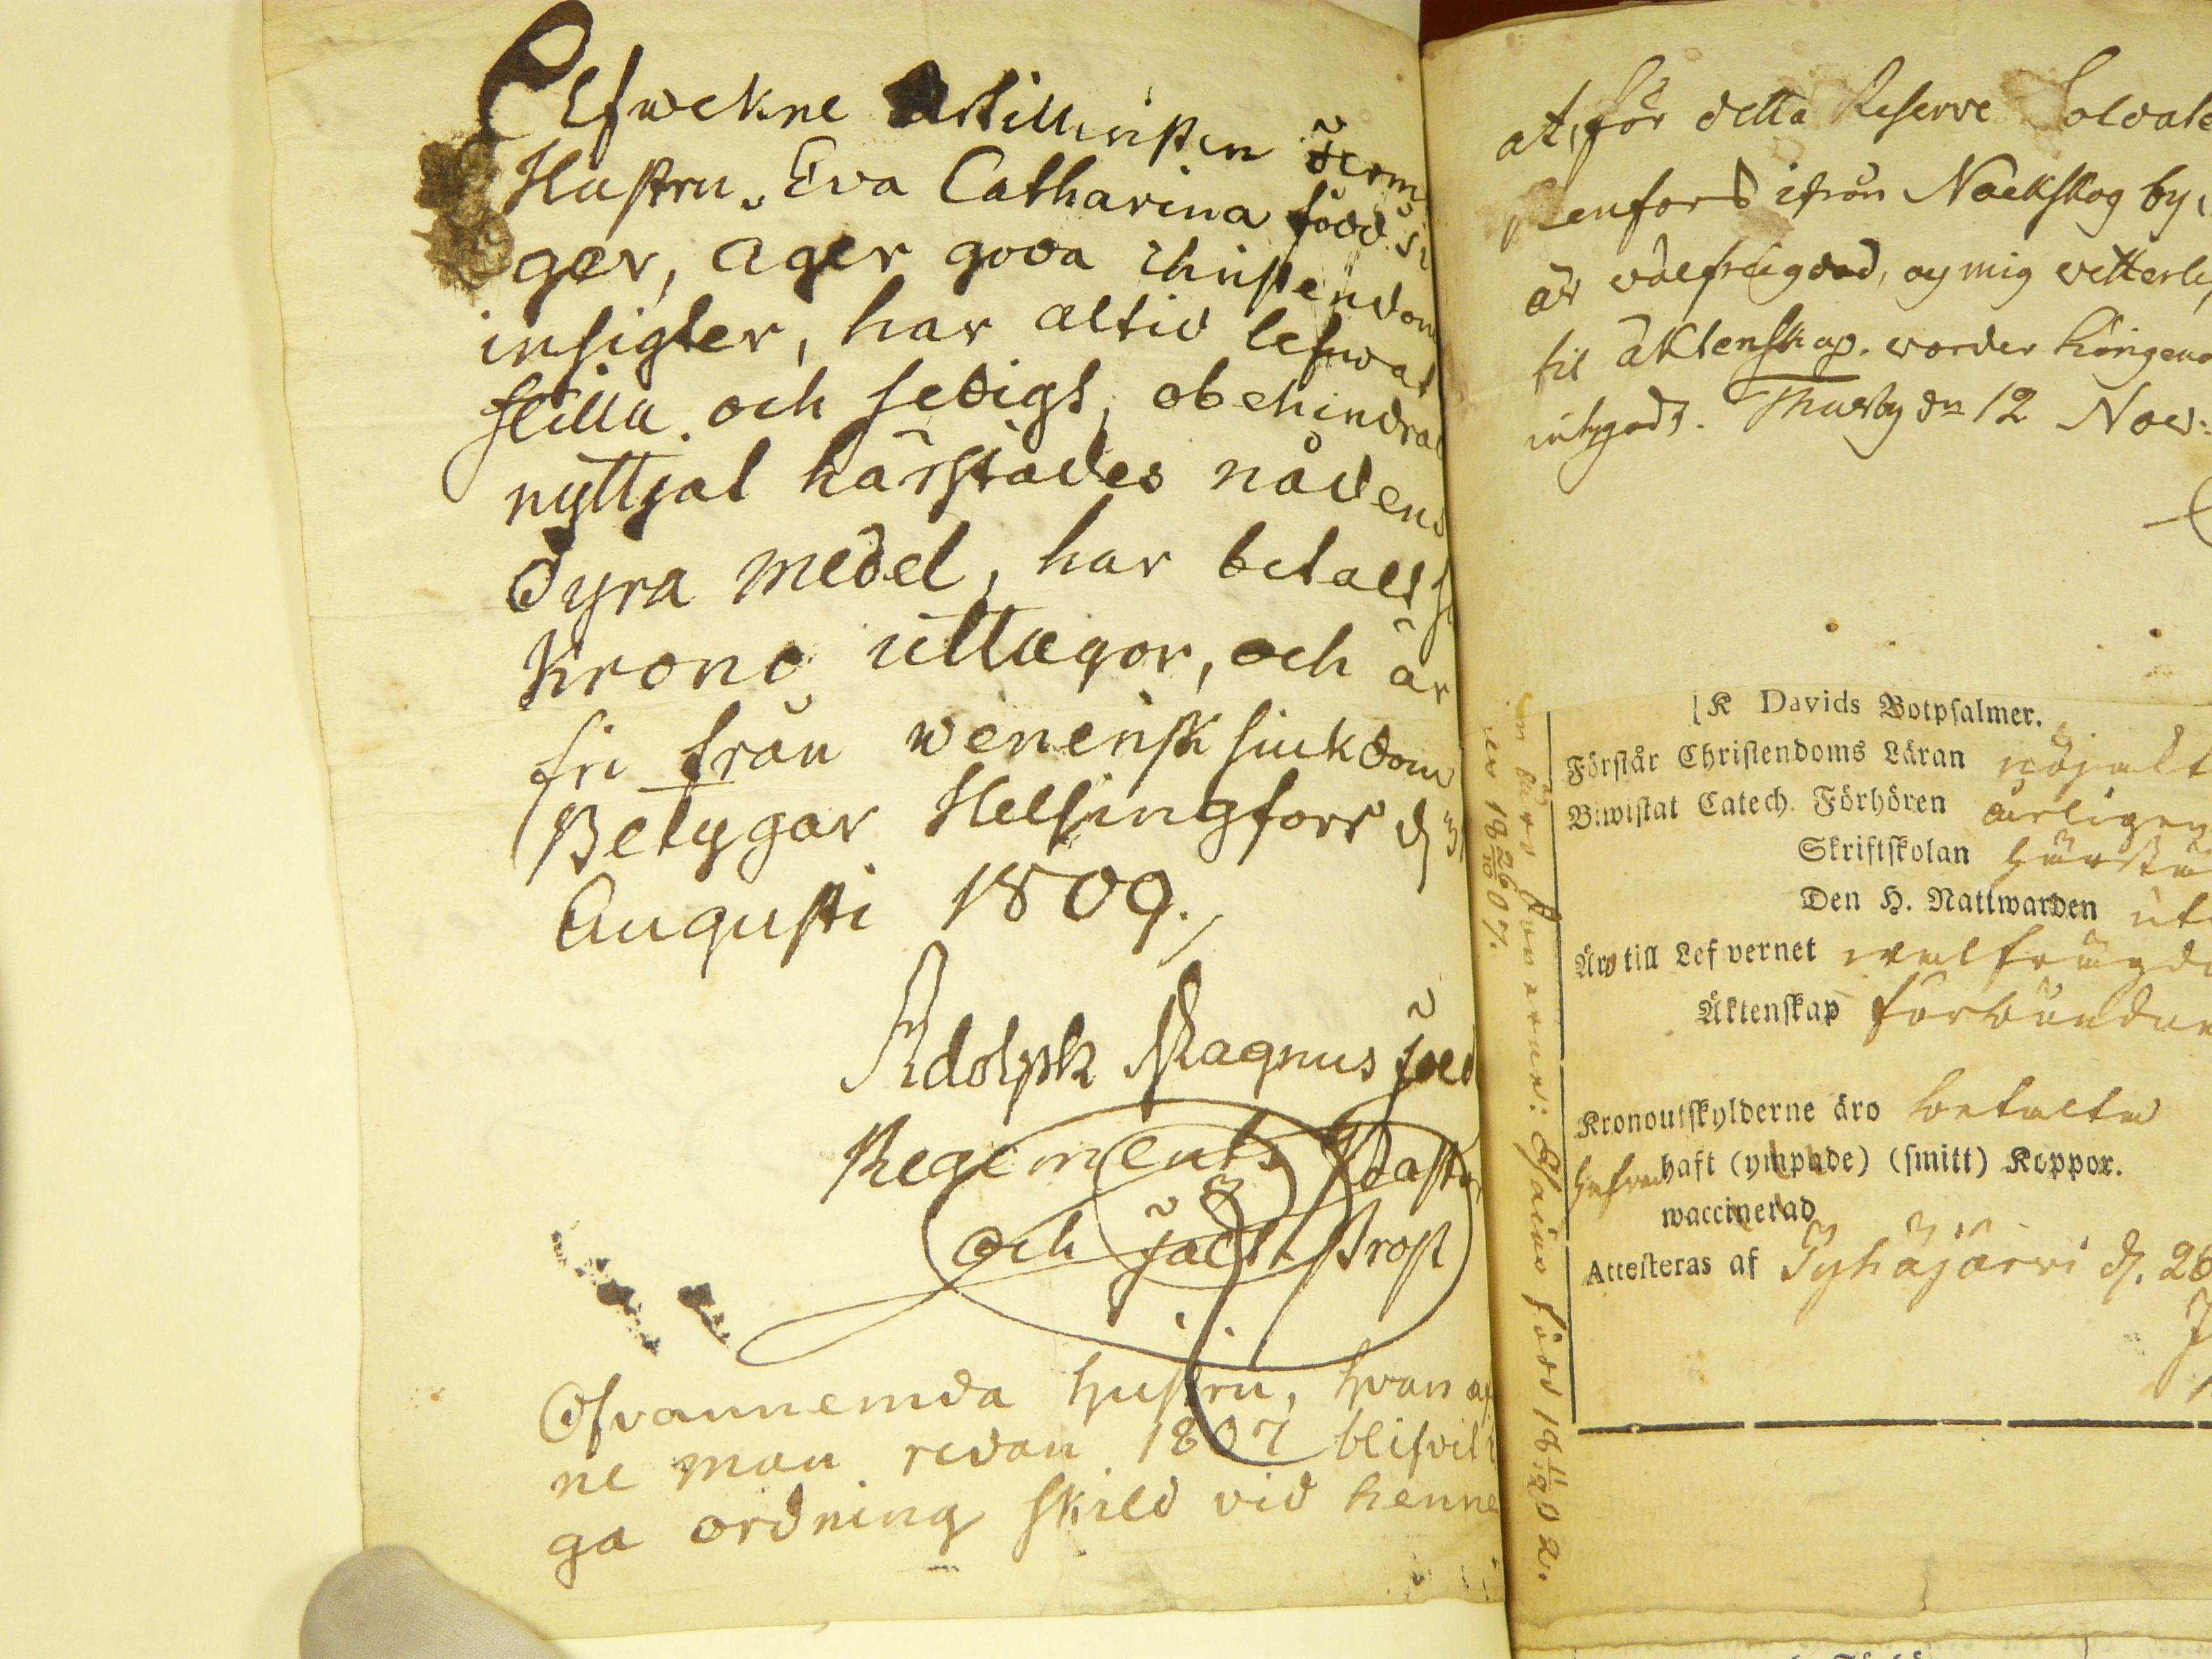 Efwekne Artilleristen
Hustru, Eva Catharina född
ger, äger goda Christendom
insigter, har altid lefwat
stilla och sedigt, obehindrat
nyttjat härstädes nådens
dyra medel, har betalt
Krono uttlagor, och är
fri från wenerisk siukdom
Betygar Helsingfors d 31
Augusti 1809.
Adolph Magnus
Regements Pastor
och Prost
Ofvannemda hustru, hvars
ne man redan 1807 blifvit
ga ordning skild vid henne
at, för detta Reserve Soldate
ifrån Nackskog by,
är välfrägdad, og mig vetterlig
til äktenskap. worder
intygads. Thusby dn 12 Nov:
K Davids Botpsalmer.
Förstår Christendoms Läran nöjakt
Biwistat Catech. Förhören årligen
Skriftskolan härstä
Den H. Nattwarden
Äro till Lefvernet walfrägda
Äktenskap förbundne
Kronoutskylderne äro betalta
hafwa haft (ympade) (smitt) Koppor.
waccinerad
Attesteras af Pyhäjärvi d. 26
född 18 11/9 02.
18 26/10 07.